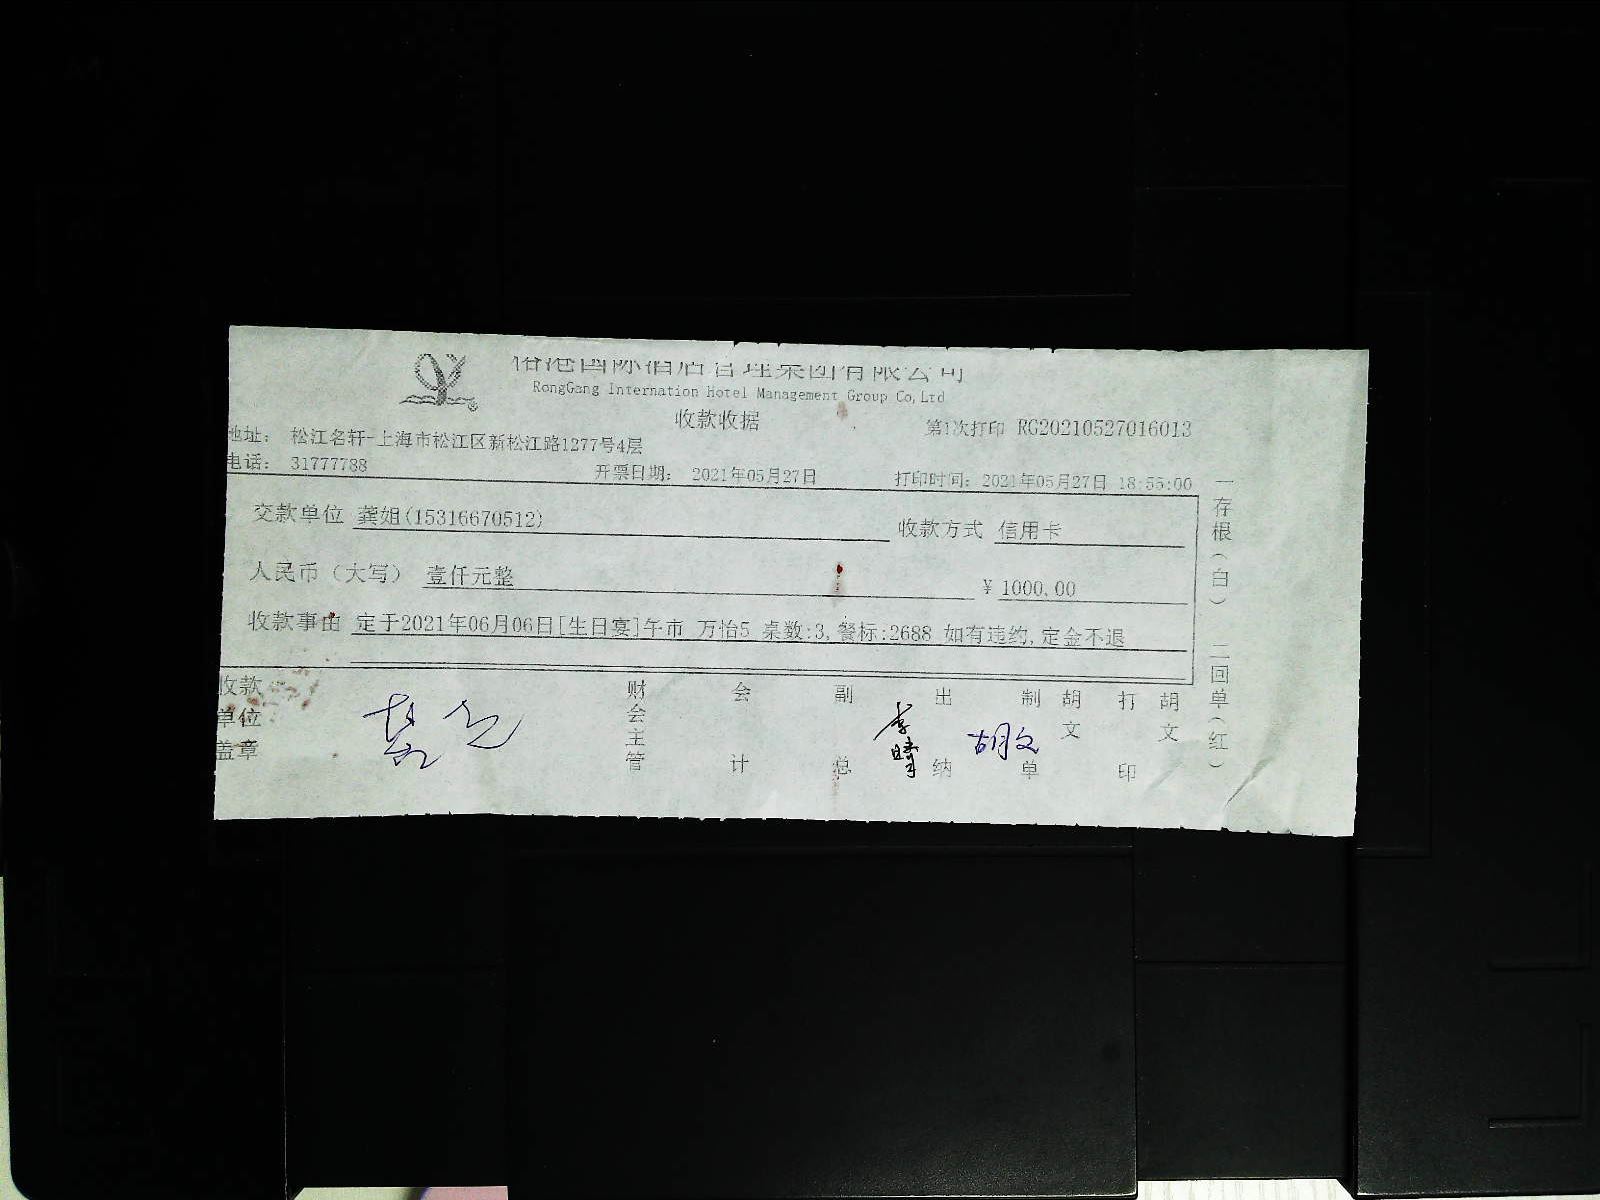 国际酒店管理集团有限公司
RongGang Internation Hotel Management Group Co,Ltd
收款收据
第1次打印 RG20210527016013
地址: 松江名轩-上海市松江区新松江路1277号4层
电话: 31777788
开票日期: 2021年05月27日
打印时间: 2021年05月27日 18:55:00
交款单位 龚姐(15316670512)
收款方式 信用卡
人民币(大写) 壹仟元整
¥ 1000.00
收款事由 定于2021年06月06日[生日宴]午市 万怡5 桌数:3,餐标:2688 如有违约,定金不退
收款单位盖章
财会主管
会计
副总
出纳
胡文
制单
胡文
打印
胡文
一存根(白) 二回单(红)